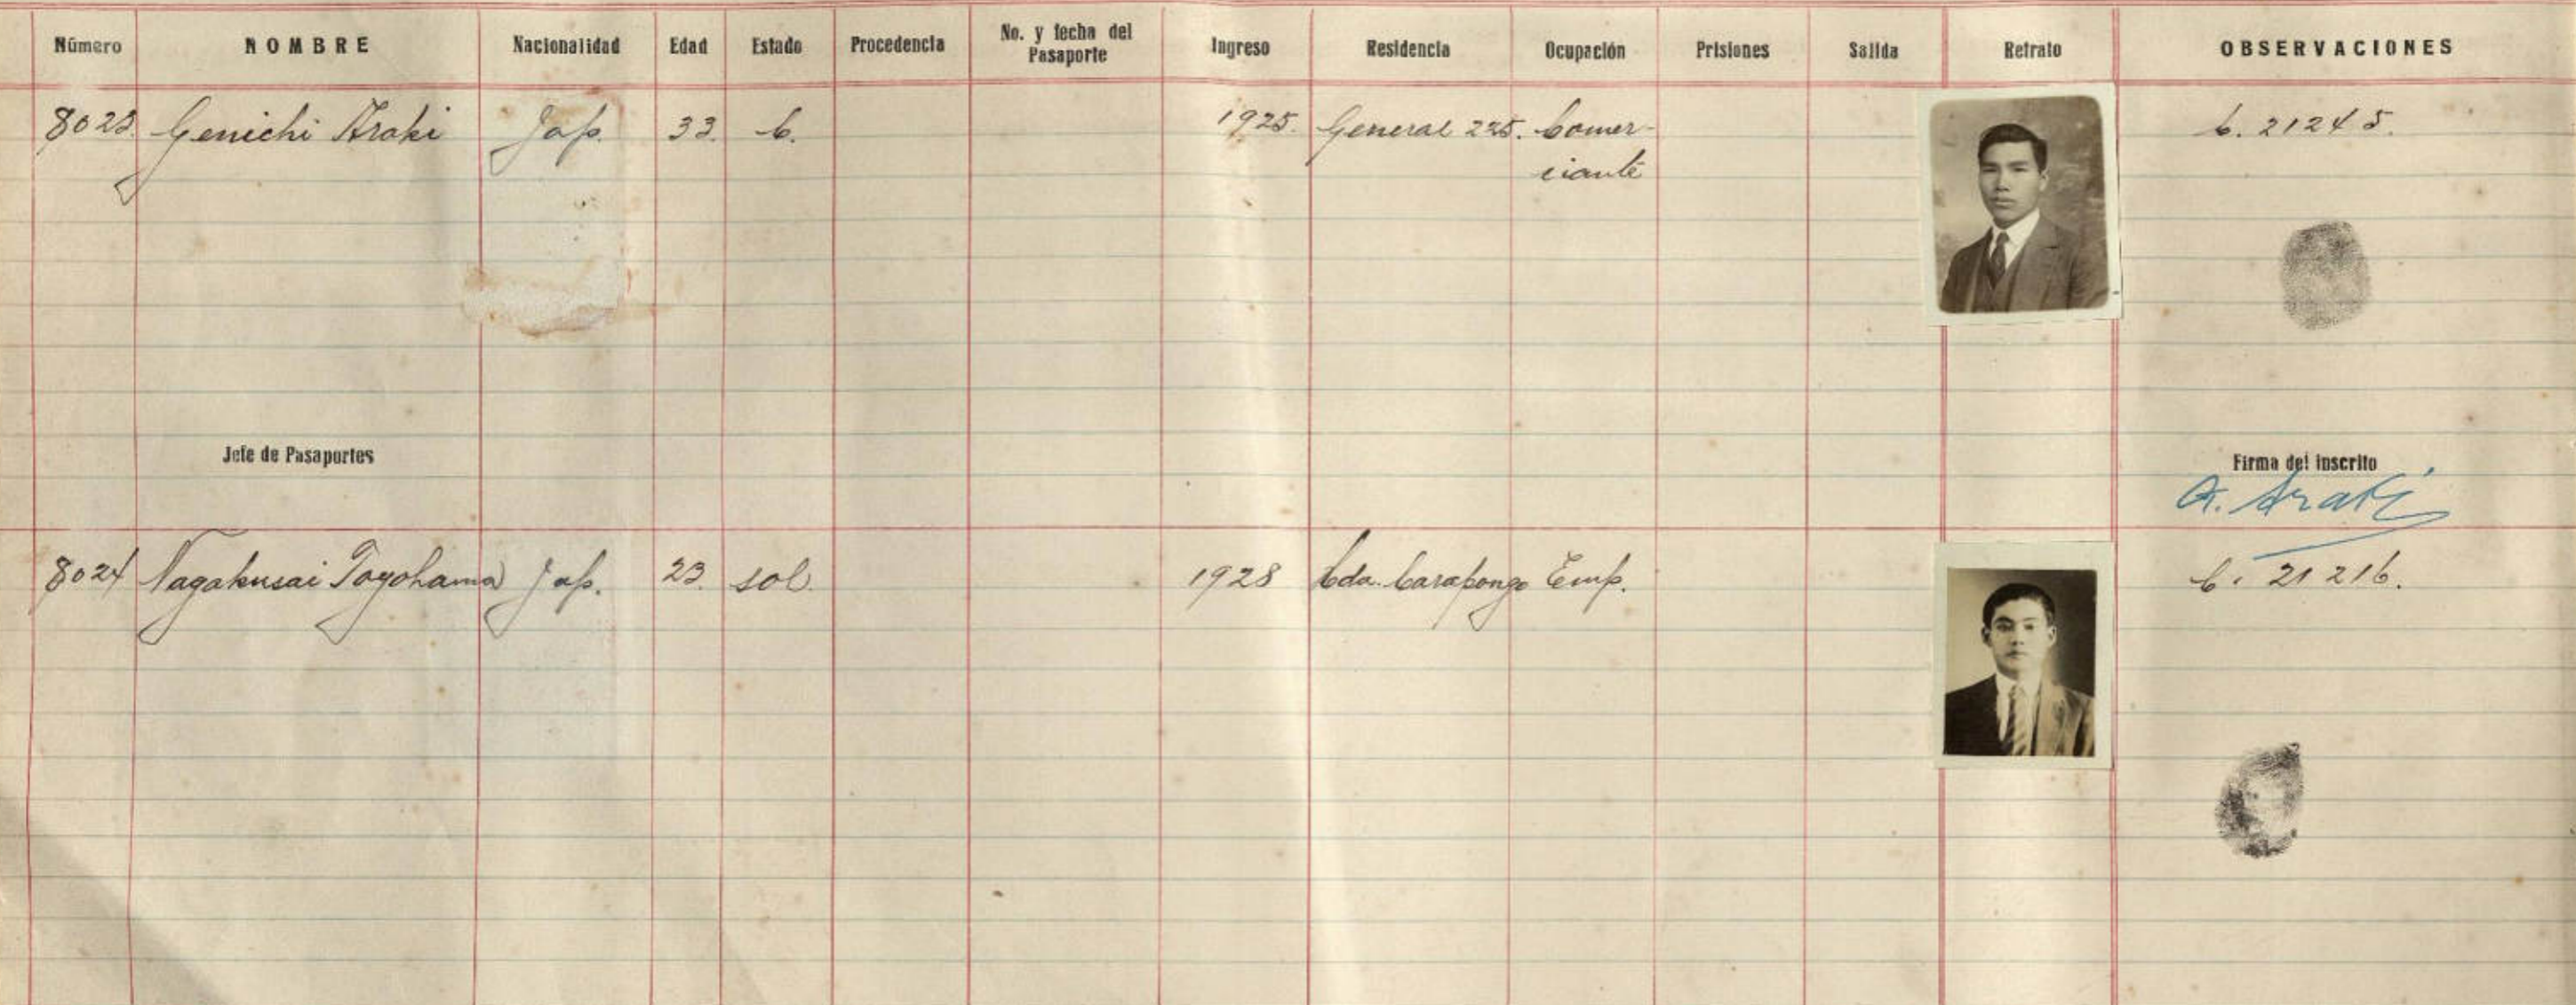 Número NOMBRE Nacionalidad Edad Estado Procedencia No. y fecha del Pasaporte Ingreso Residencia Ocupación Prisiones Salida Retrato OBSERVACIONES
8023 Genichi Araki Jap. 33. C. 1925. General 225. Comer-
ciante
C. 21245.
Jefe de Pasaportes
Firma del inscrito
G. Araki
8024 Nagakusai Toyohama Jap. 23. sol. 1928 Hda. Carapongo Emp. C. 21216.